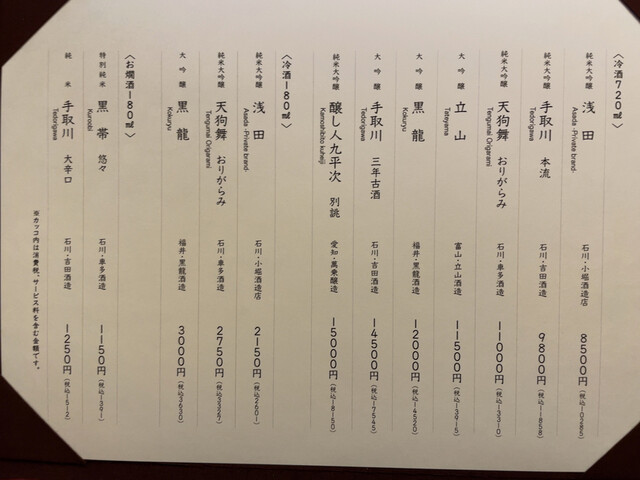 〈冷酒720㎖〉
純米大吟醸 浅田 石川・小堀酒造店 8500円(税込10285)
Asada -Private brand-
純米大吟醸 手取川 本流 石川・吉田酒造 9800円(税込11858)
Tedorigawa
純米大吟醸 天狗舞 おりがらみ 石川・車多酒造 11000円(税込13310)
Tengumai Origarami
大吟醸 立山 富山・立山酒造 11500円(税込13915)
Tateyama
大吟醸 黒龍 福井・黒龍酒造 12000円(税込14520)
Kokuryu
大吟醸 手取川 三年古酒 石川・吉田酒造 14500円(税込17545)
Tedorigawa
純米大吟醸 醸し人九平次 別誂 愛知・萬乗醸造 15000円(税込18150)
Kamoshibito kuheiji
〈冷酒180㎖〉
純米大吟醸 浅田 石川・小堀酒造店 2150円(税込2601)
Asada -Private brand-
純米大吟醸 天狗舞 おりがらみ 石川・車多酒造 2750円(税込3327)
Tengumai Origarami
大吟醸 黒龍 福井・黒龍酒造 3000円(税込3630)
Kokuryu
〈お燗酒180㎖〉
特別純米 黒帯 悠々 石川・車多酒造 1150円(税込1391)
Kuroobi
純米 手取川 大辛口 石川・吉田酒造 1250円(税込1512)
Tedorigawa
※カッコ内は消費税、サービス料を含む金額です。